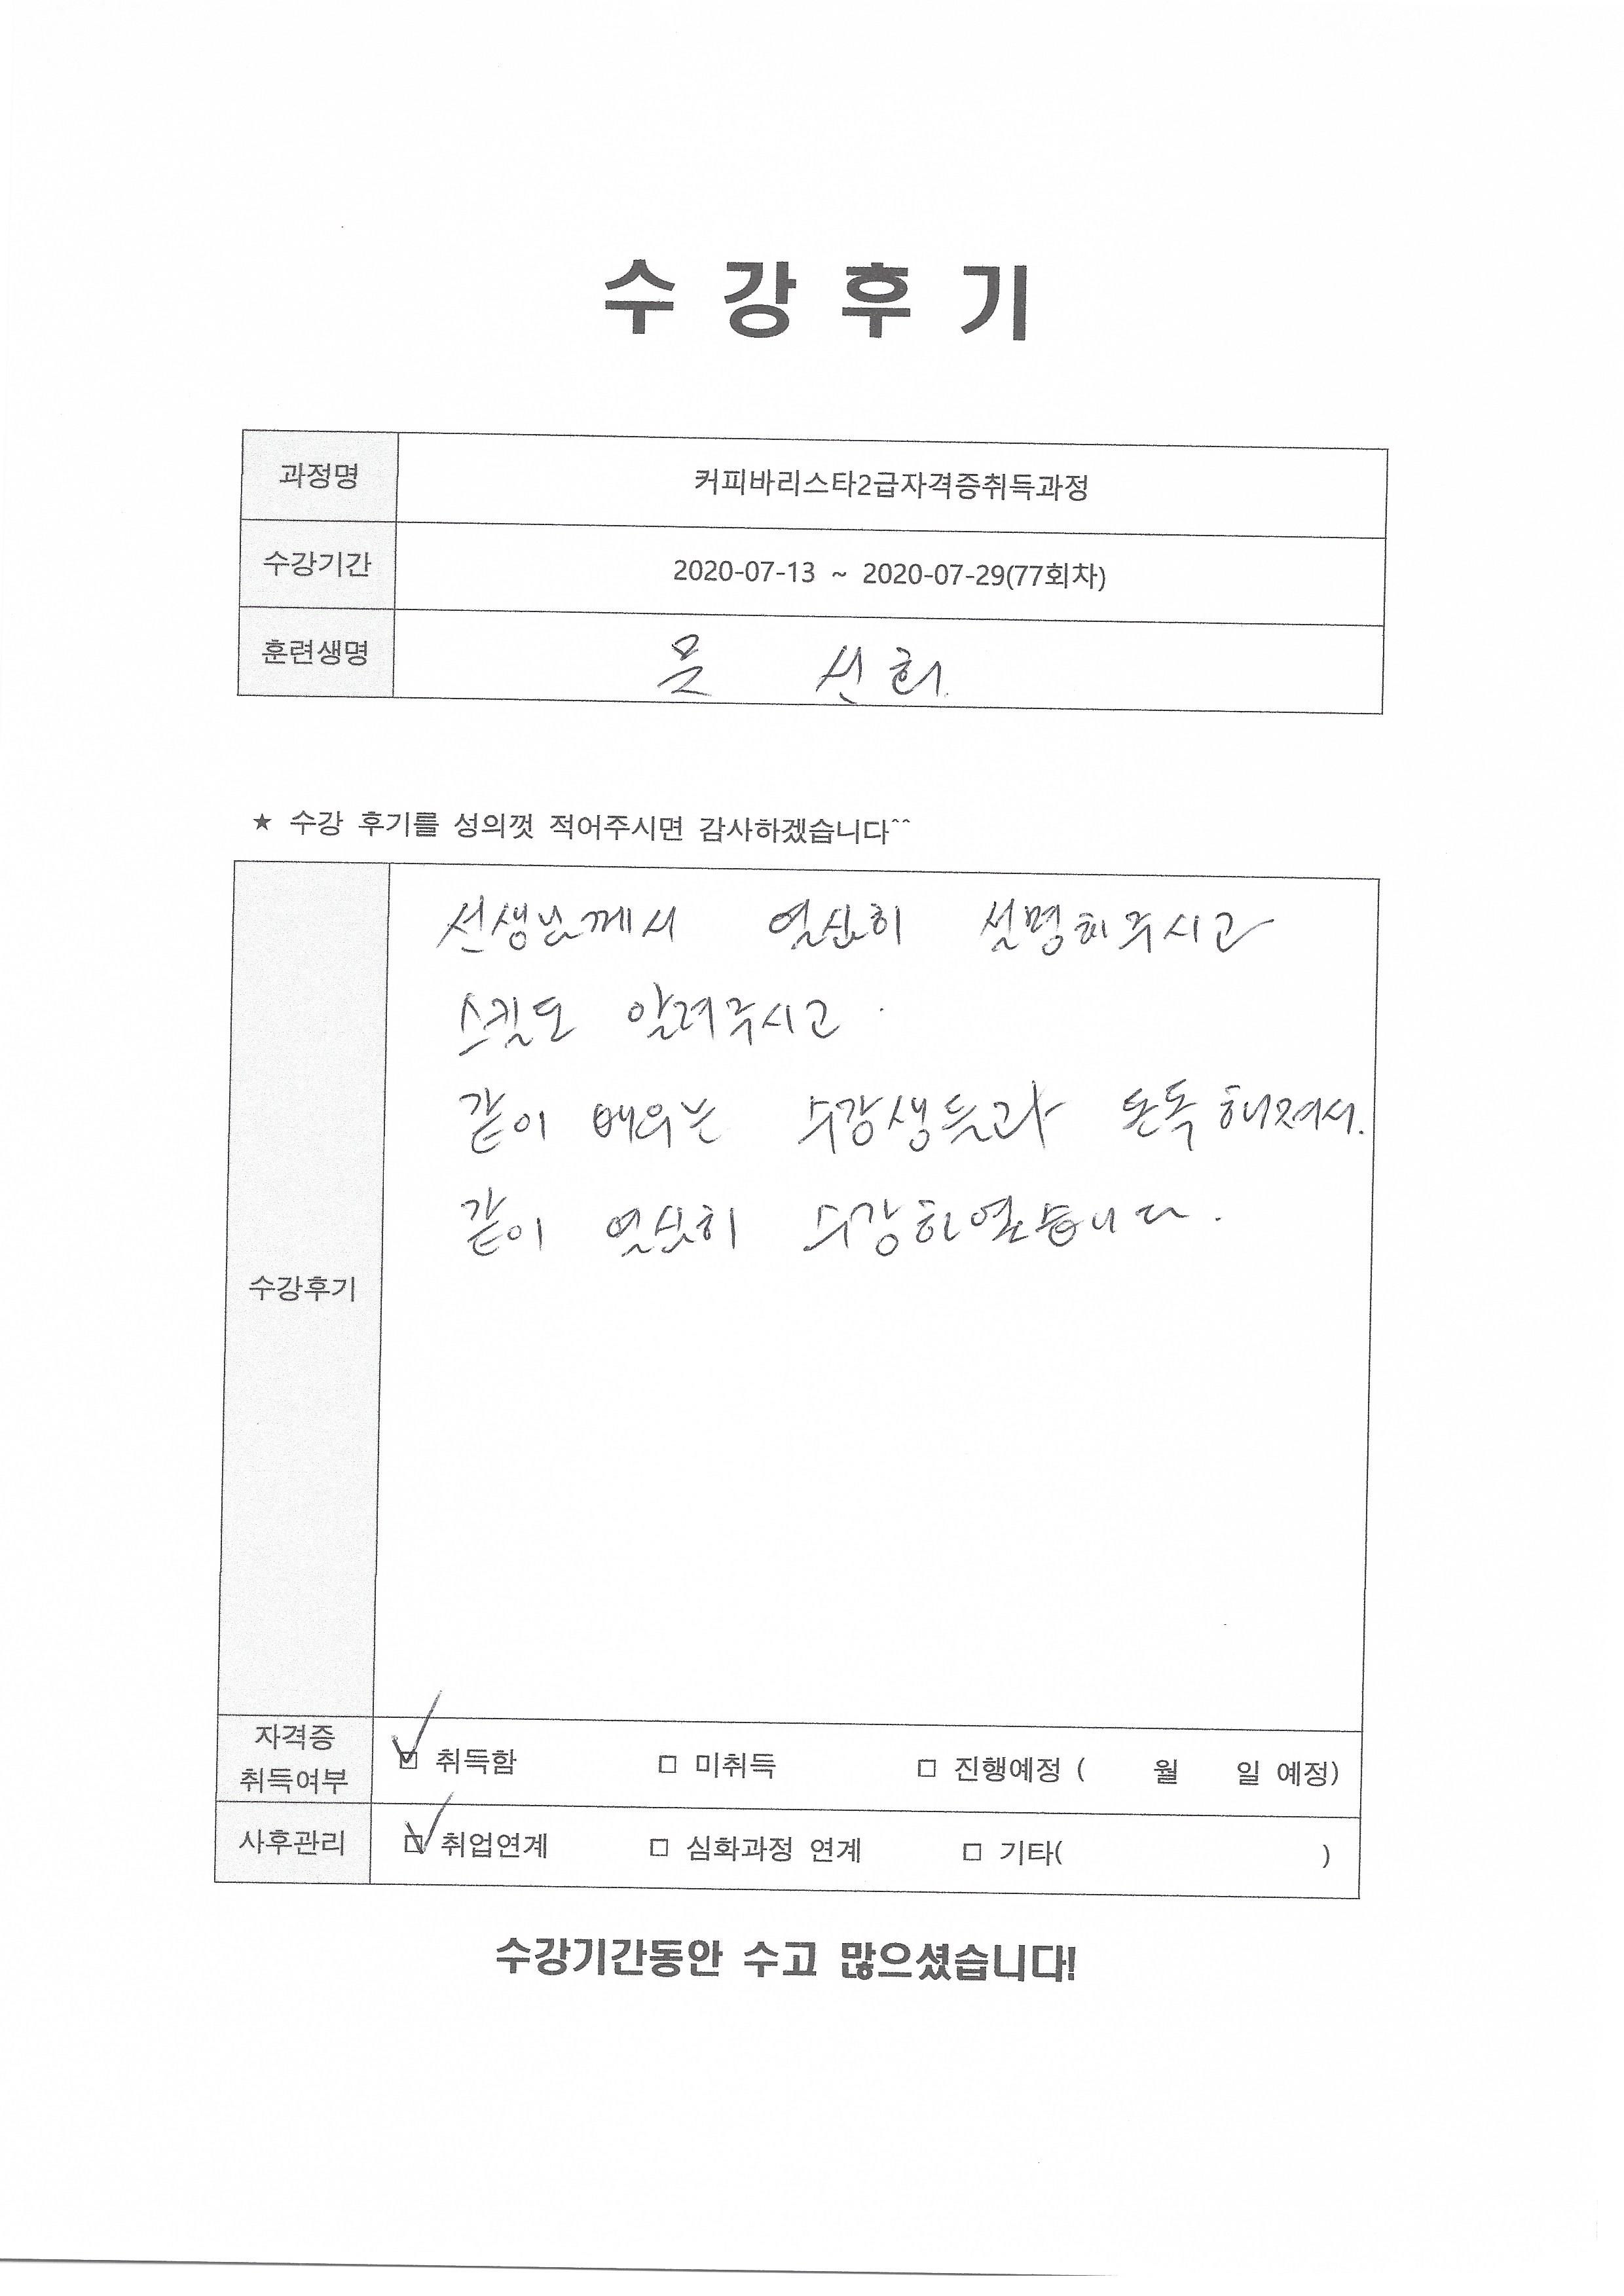 수강후기
과정명 커피바리스타2급자격증취득과정
수강기간 2020-07-13 ~ 2020-07-29(77회차)
훈련생명
★ 수강 후기를 성의껏 적어주시면 감사하겠습니다^^
선생님께서 열심히 설명해주시고
스킬도 알려주시고.
같이 배우는 수강생들과 돈독해져서.
같이 열심히 수강하였습니다.
수강후기
자격증
취득여부 ☑ 취득함 □ 미취득 □ 진행예정 ( 월 일 예정)
사후관리 ☑ 취업연계 □ 심화과정 연계 □ 기타( )
수강기간동안 수고 많으셨습니다!